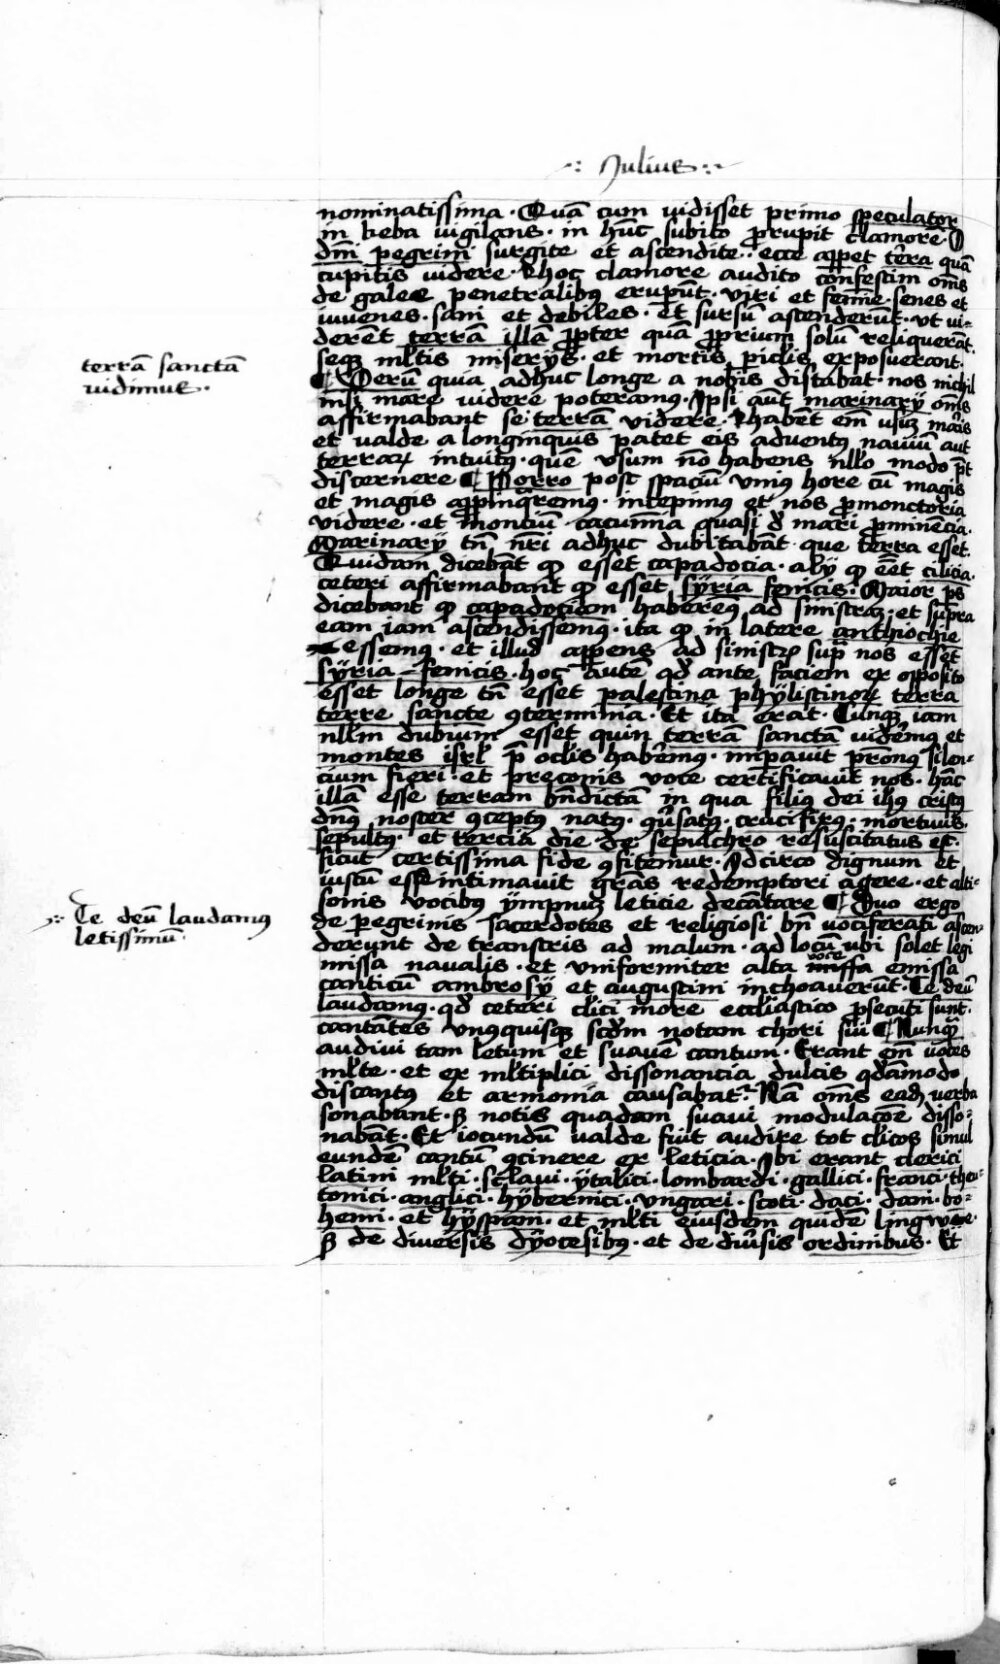 ·: Julius :·
nominatissima · Quā cum vidisset primo speculator
in keba vigilans · in hūc subito prorupit clamorē · O
dm̄i peregrini surgite et ascendite · ecce apparet tērra quā
cupitis videre · Rhoc clamore audito confestim om̄s
de galee penetralibus eruperūt · viri et femīe · senes et
iuvenes · sani et debiles · et sursū ascenderūt · vt vi-
derēt terrā illā propter quā proprium solū reliquerāt ·
seqz ml̄tis miserijs · et mortis periclis exposuerant ·
¶ Verū quia adhuc longe a nobis distabat · nos nichil
nisi mare videre poteramus · Ipsi aut marinarÿ om̄s
affirmabant se terrā videre · Rhabēt em̄ vsuz maris
et valde a longinquis patet eis adventus naviū aut
terrarꝝ intuitus · quē vsum nō habens nllo modo pt̄
discernere ¶ Porro post spaciū vnius hore cū magis
et magis appīnq̄remus · incepimus et nos promonctoria
videre · et montiū cacumina quasi d̄ mari prominēcia ·
Marinarÿ tn̄ nr̄i adhuc dubitabāt que terra esset ·
Quidam dicebāt qp esset capadocia · alÿ qp eēt cilicia ·
ceteri affirmabant qp esset sÿria fenicis · Maior ps̄
dicebant qp capadociam haberemus ad sinistraz · et supra
eam iam ascendissemus · ita qp in latere anthiochie
essemus · et illud apparens ad sinistrā supra nos esset
sÿria fenicis · hoc autē qd̄ ante faciem ex opposito
esset longe tn̄ esset palestina phÿlistinorꝝ terra
terre sancte ꝯterminia · Et ita erat · Cunqz iam
nllm dubium esset quin terrā sanctā viderēmus et
montes isrl̄ p̄ oclis haberēmus · imperavit pronus silen-
cium fieri · et preconis voce certificavit nos · hāc
illā esse terram bn̄dictā in qua filius dei ihūs cristus
dn̄s noster ꝯceptus natus · ꝯūsatus · crucifixus · mortuus ·
sepultus · et tercia die de sepulchro resuscitatus est ·
sicut certissima fide ꝯfitemur · Idcirco dignum et
iustū esse intimavit grās redemptori agere · et alti-
sonis vocibus ÿmpnuz leticie decātare ¶ Duo ergo
de peregrinis sacerdotes et religiosi bn̄ vociferati ascen-
derunt de transtris ad malum · ad locū vbi solet legi
missa navalis · et vniformiter alta voce emissa
canticū ambrosÿ et augustini inchoaverūt · Te deū
laudamus · qd̄ ceteri clici more eccliastico prosecuti sunt ·
cantātes vnusquisqz scdm notam chori sui ¶ Nunqz
audivi tam letum et suavē cantum · Erant em̄ voces
ml̄te · et ex ml̄tiplici dissonancia dulcis qd̄āmodo
discantus et armonia causabat · Nā om̄s eadē verba
sonabant · sz notis quadam suavi modulacōe disso-
nabāt · Et iocundū valde fuit audire tot clicos simul
eundē cantū ꝯcinere ex leticia · Ibi erant clerici
latini ml̄ti · sclavi · ÿtalici · lombardi · gallici · franci · theu-
tonici · anglici · hÿbernici · vngari · scoti · daci · dani · bo-
hemi · et hÿspani · et ml̄ti eiusdem quidē lingwe ·
sz de diversis dÿocesibus · et de diūsis ordinibus · Et
terrā sanctā
vidimus ·
·:· Te deū laudamus
letissimū ·